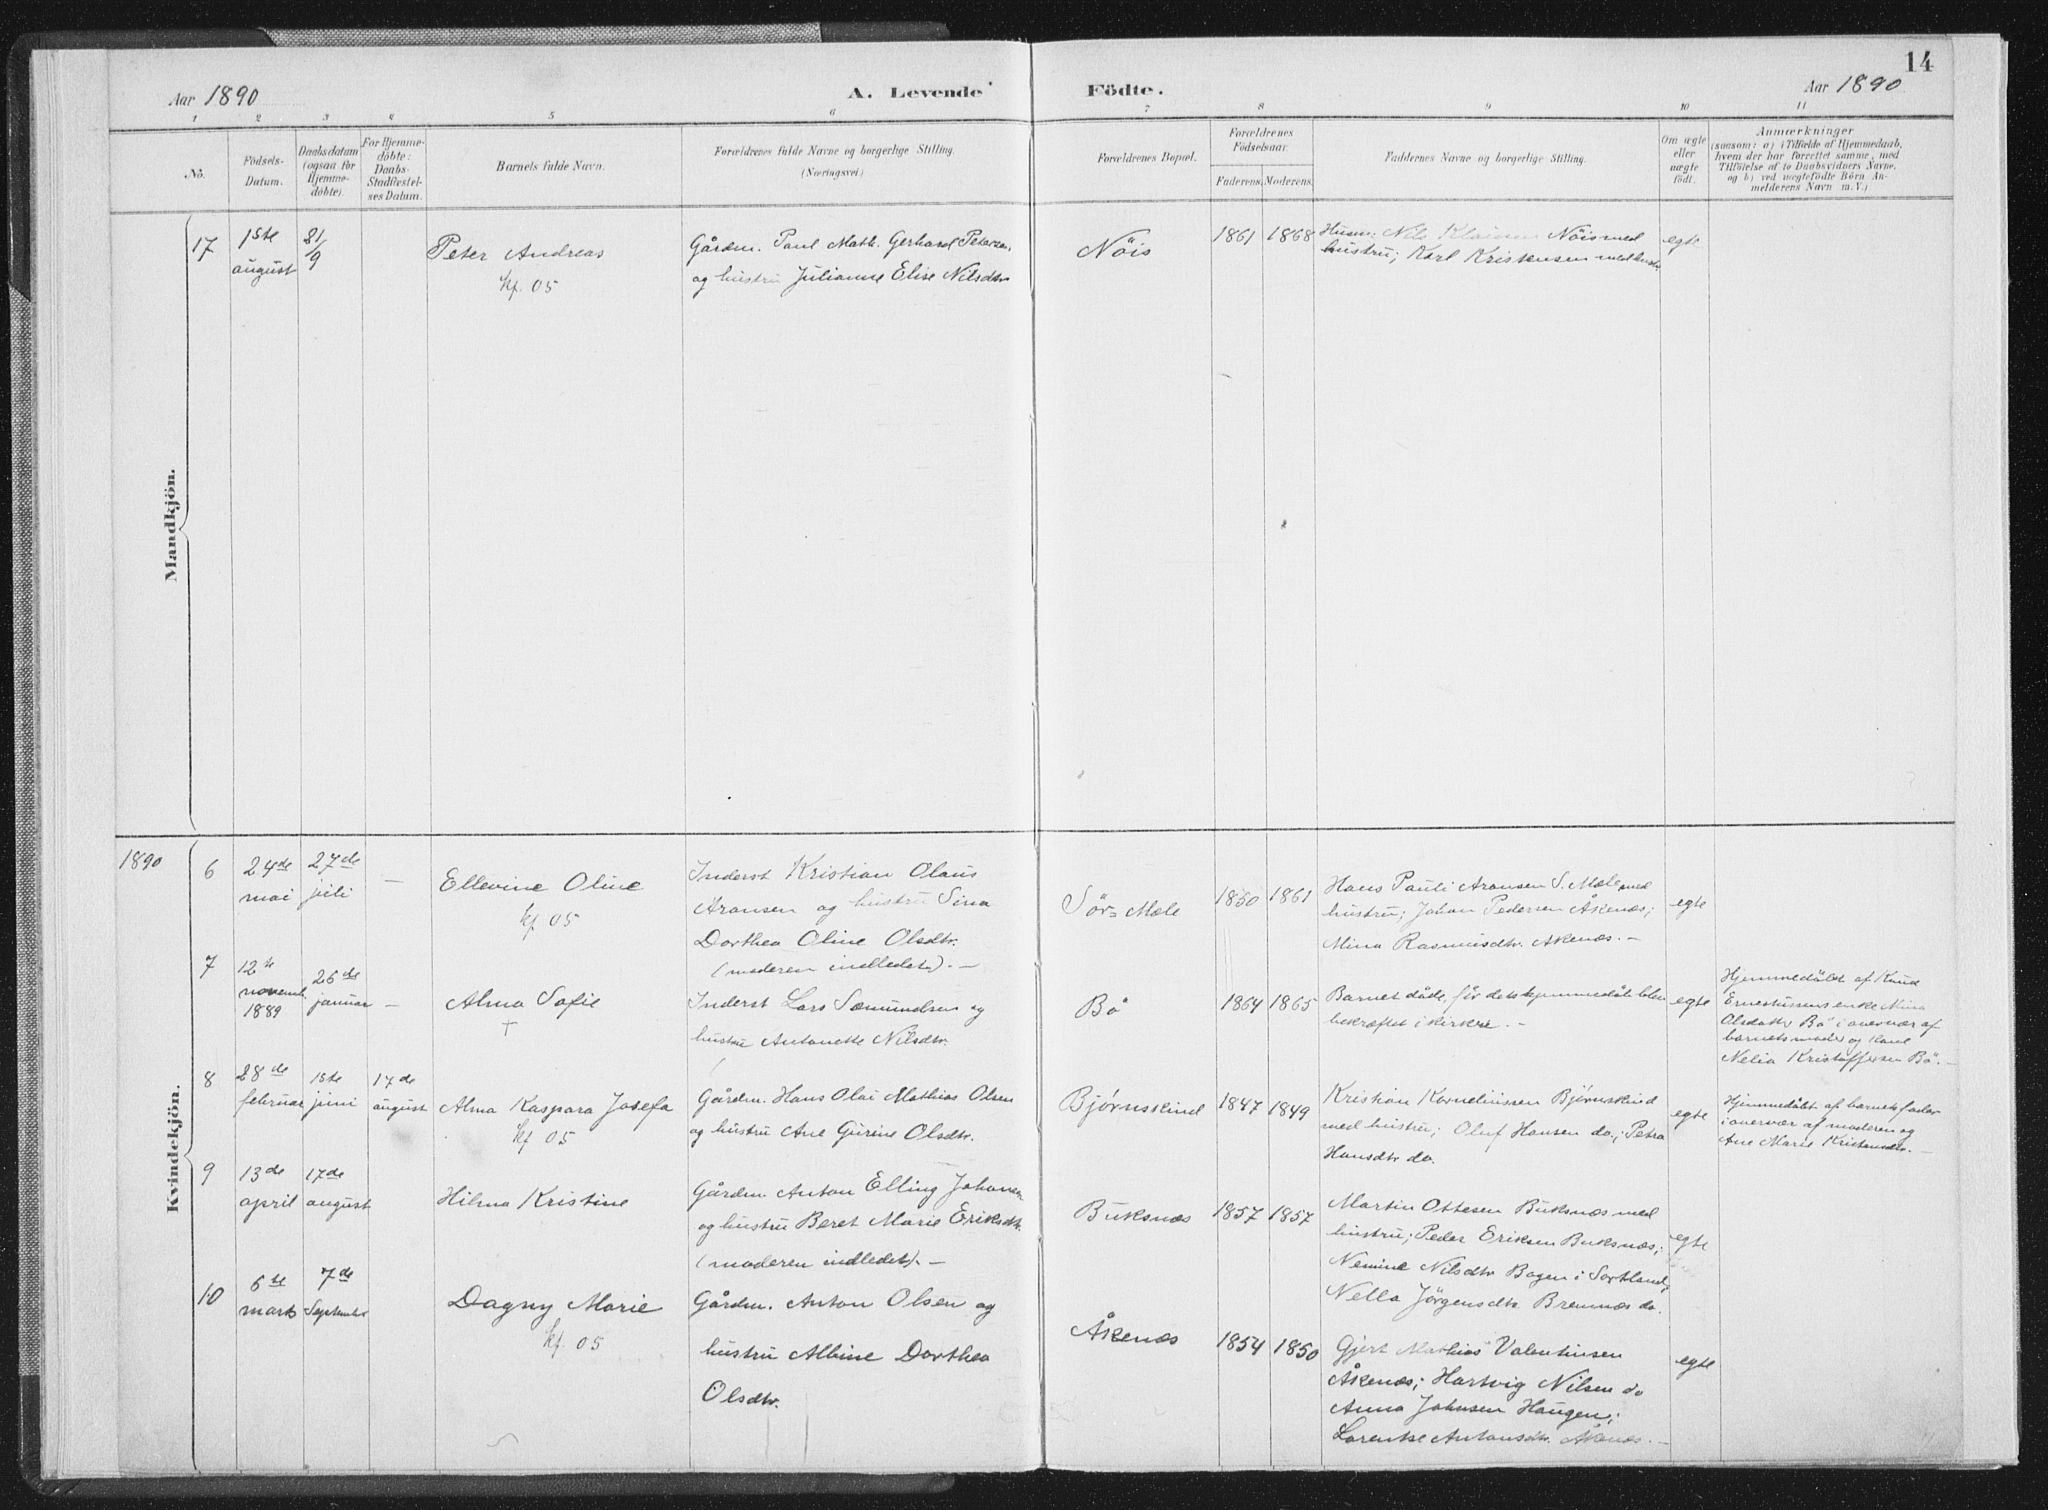 14
Aar 1890
A. Levende
Födte.
Aar 1890
1 2 3 4 5 6 7 8 9 10 11
No.
Födsels-
Datum.
Daabsdatum
(ogsaa for
Hjemme-
döbte).
For Hjemme-
döbte:
Daabs-
Stadfestel-
ses Datum.
Barnets fulde Navn.
Forældrenes fulde Navne og borgerlige Stilling.
(Næringsvei)
Forældrenes Bopæl.
Forældrenes
Födselsaar.
Faderens. Moderens.
Faddernes Navne og borgerlige Stilling.
Om ægte
eller
uægte
födt.
Anmærkninger
(saasom: a) i Tilfælde af Hjemmedaab,
hvem der har forrettet samme, med
Tilföielse af to Daabsvidners Navne,
og b) ved uægtefödte Börn An-
melderens Navn m. V.)
Mandkjön.
17
1ste
august
21/9
Peter Andreas
kf. 05
Gårdm. Paul Math. Gerhard Petersen
og hustru Julianne Elise Nilsdtr
Nöis
1861 1868
Husm. Nils Klausen Nöis med
hustru; Karl Kristensen med hustr
egte
Kvindekjön.
1890
6
24de
mai
27de
juli
—
Ellevine Oline
kf. 05
Inderst Kristian Olaus
Aronsen og hustru Sina
Dorthea Oline Olsdtr.
(moderen indledet). —
Sör-Mæle
1850 1861
Hans Pauli Aronsen S. Mæle med
hustru; Johan Pedersen Åkenæs;
Mina Rasmusdtr. Åkenæs. —
egte
7
12te
novemb.
1889
26de
januar
—
Alma Sofie
†
Inderst Lars Sæmundsen og
hustru Antonette Nilsdtr.
Bö
1864 1865
Barnet döde, för dets hjemmedåb blev
bekræftet i kirken. —
egte
Hjemmedöbt af Knud
Ernestussens enke Mina
Olsdatter Bö i overvær af
barnets moder og
Nelia Kristoffersen Bö. —
8
28de
februar
1ste
juni
17de
august
Alma Kaspara Josefa
kf 05
Gårdm. Hans Olai Mathias Olsen
og hustru Ane Gurine Olsdtr.
Bjørnskind
1847 1849
Kristian Korneliussen Bjørnskind
med hustru; Oluf Hansen do.; Petra
Hansdtr do.
egte
Hjemmedöbt af barnets fader
i overvær af moderen og
Ane Marie Kristensdtr. —
9
13de
april
17de
august
Hilma Kristine
Gårdm. Anton Elling Johansen
og hustru Beret Marie Eriksdtr.
(moderen indledet). —
Buksnæs
1857 1857
Martin Ottesen Buksnæs med
hustru; Peder Eriksen Buksnæs;
Nemine Nilsdtr Bogen i Sortland;
Nella Jörgensdtr Bremnæs do.
egte
10
6te
marts
7de
September
Dagny Marie
kf. 05
Gårdm. Anton Olsen og
hustru Albine Dorthea
Olsdtr.
Åkenæs
1854 1850
Gjert Mathias Valentinsen
Åkenæs; Hartvig Nilsen do
Anna Johnsen Haugen;
Lorentse Antonsdtr. Åkenæs. —
egte